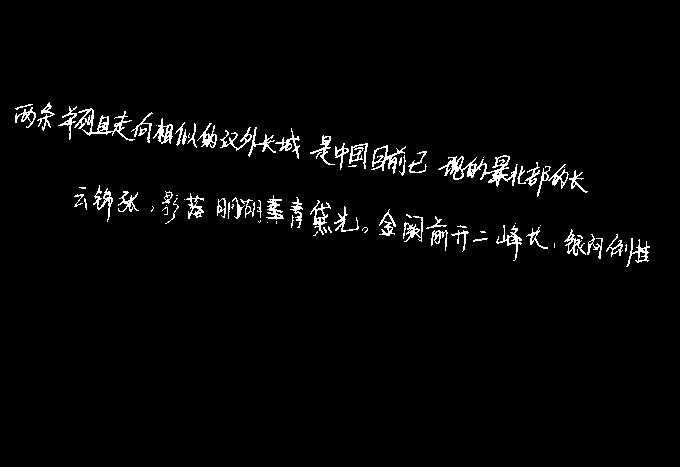 两条单列且走向相似的汉外长城 是中国目前已 现的最北部的长
云锦张,影落明湖青黛光。金阙前开二峰长,银河倒挂